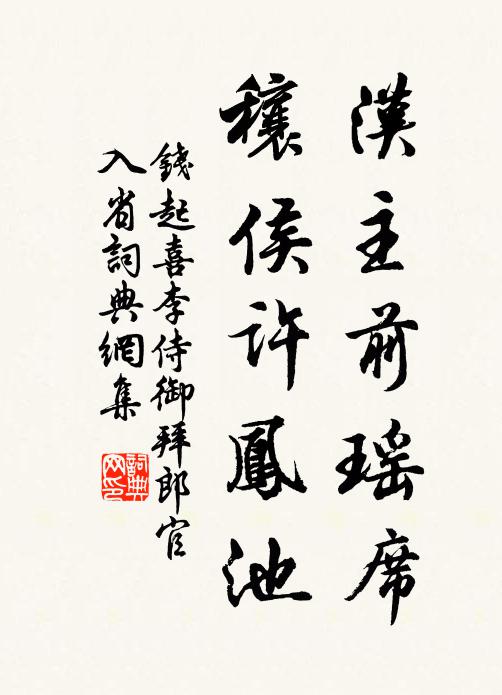 漢主前瑶席
穰侯許鳳池
錢起喜李侍御拜郎官
入省詞典網集
詞典網印